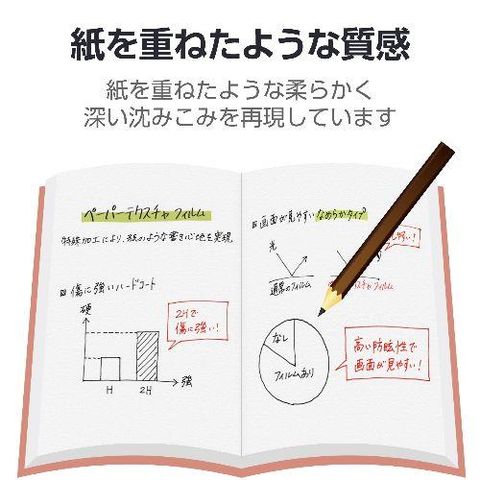 紙を重ねたような質感
紙を重ねたような柔らかく
深い沈みこみを再現しています
ペーパーテクスチャフィルム
特殊加工により、紙のような書き心地を実現。
傷に強いハードコート
硬
2Hで
傷に強い!
H
2H
強
画面が見やすいなめらかタイプ
光
すい!
通常のフィルム
スチャフィルム
なし
フィルムあり
高い防眩性で
画面が見やすい!